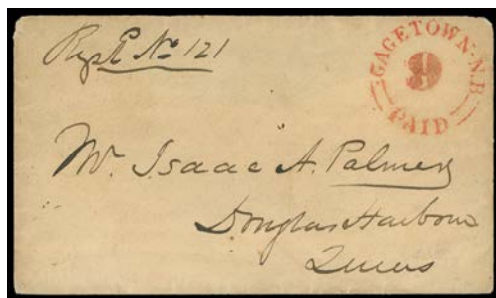 Regd No 121
GAGETOWN. N.B
PAID
Mr. Isaac A. Palmer
Douglas Harbour
Queens